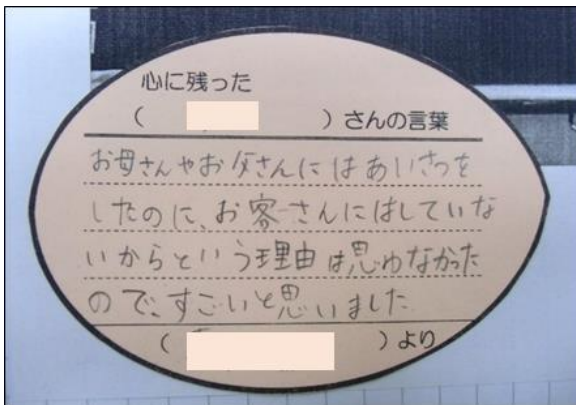 心に残った
（　　　　）さんの言葉
お母さんやお父さんにはあいさつを
したのに、お客さんにはしていな
いからという理由は思わなかった
ので、すごいと思いました
（　　　　）より